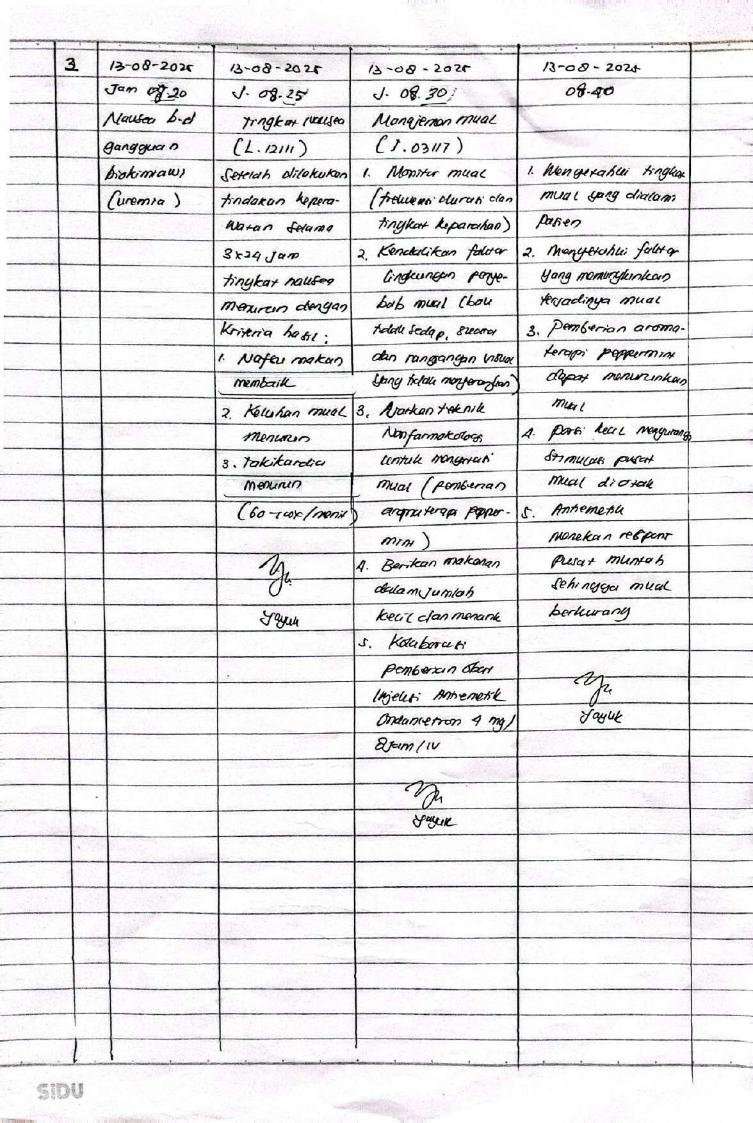 3
13-08-2025
Jam 08.20
Nausea b.d
gangguan
biokimiawi
(uremia)
13-08-2025
J. 08.25
Tingkat nausea
(L.12111)
Setelah dilakukan
tindakan kepera-
watan selama
3x24 Jam
tingkat nausea
menurun dengan
kriteria hasil:
1. Nafsu makan
membaik
2. Keluhan mual
menurun
3. takikardia
menurun
(60-100x/menit)
Yayuk
13-08-2025
J. 08.30
Manajemen mual
(I.03117)
1. Monitor mual
(frekuensi durasi dan
tingkat keparahan)
2. Kendalikan faktor
lingkungan penye-
bab mual (bau
tidak sedap, suara
dan rangsangan visual
yang tidak menyenangkan)
3. Ajarkan teknik
Nonfarmakologi
untuk mengatasi
mual (pemberian
aromaterapi pepper-
mint)
4. Berikan makanan
dalam jumlah
kecil dan menarik
5. Kolaborasi
pemberian obat
Injeksi Antiemetik
Ondancetron 4 mg/
8 jam/IV
Yayuk
13-08-2025
08.40
1. Mengetahui tingkat
mual yang dialami
pasien
2. Mengetahui faktor
yang memungkinkan
terjadinya mual
3. Pemberian aroma-
terapi peppermint
dapat menurunkan
mual
4. porsi kecil mengurangi
stimulasi pusat
mual diotak
5. Antiemetik
menekan respont
pusat muntah
sehingga mual
berkurang
Yayuk
SiDU